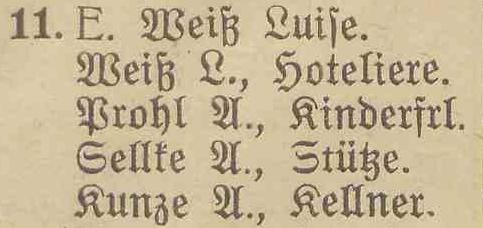 11. E. Weiß Luise.
Weiß L., Hoteliere.
Prohl A., Kinderfrl.
Sellke A., Stütze.
Kunze A., Kellner.